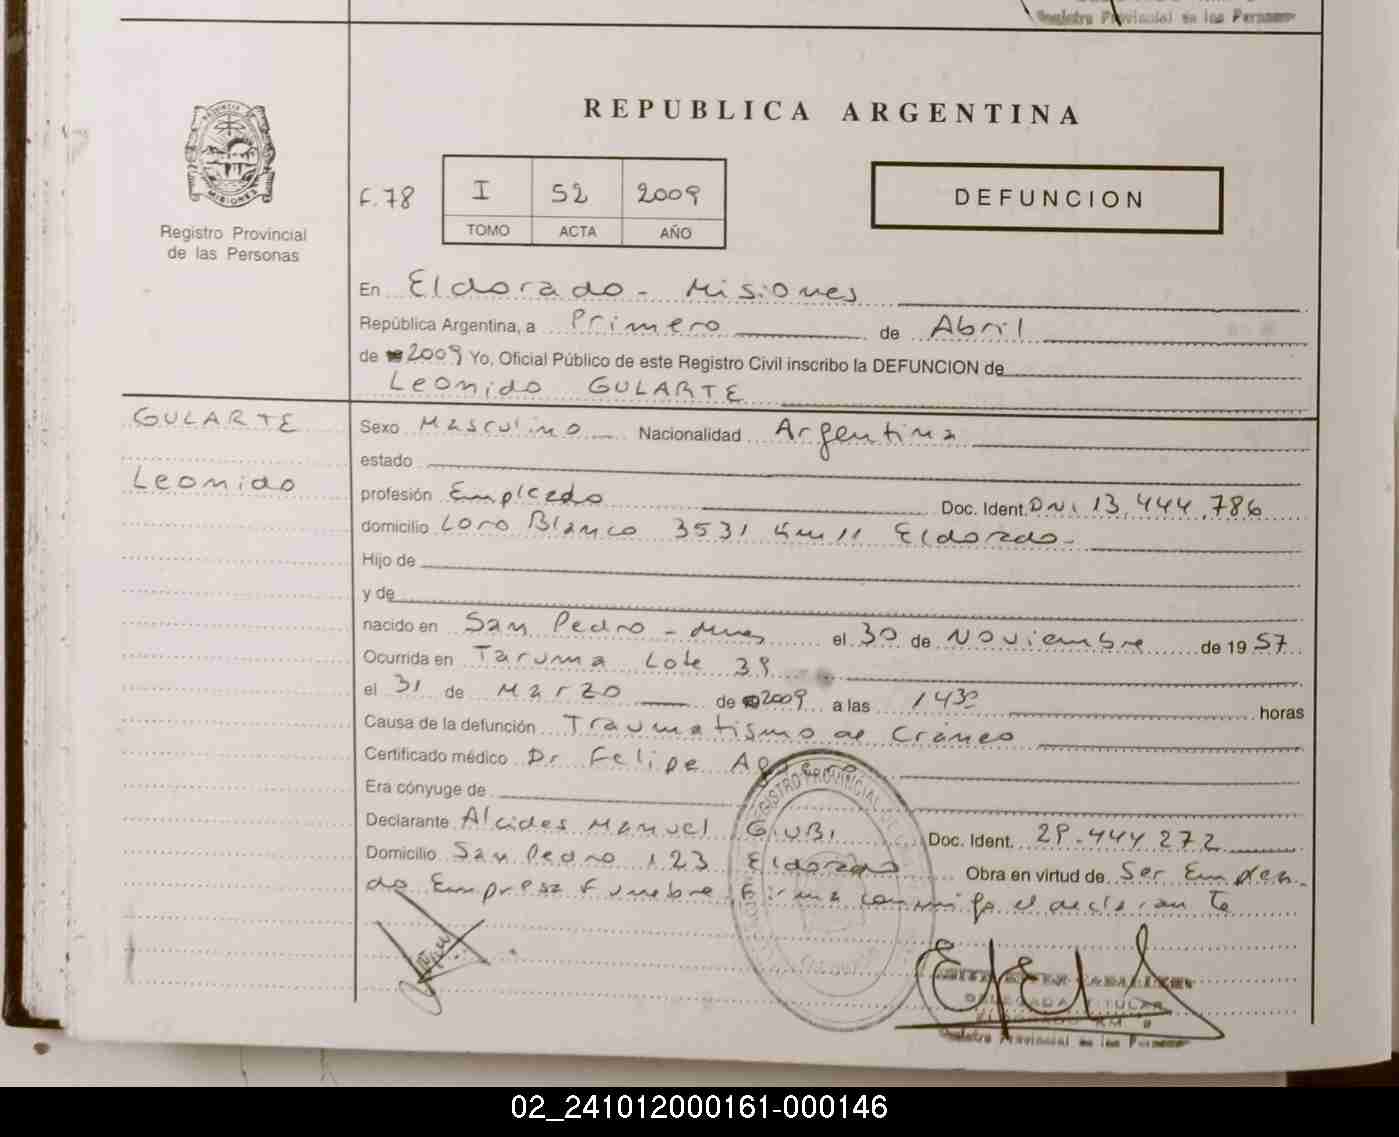 Registro Provincial de las Personas
REPUBLICA ARGENTINA
PROVINCIA DE
MISIONES
Registro Provincial
de las Personas
F. 78
I 52 2009
TOMO ACTA AÑO
DEFUNCION
En Eldorado - Misiones
República Argentina, a Primero de Abril
de 2009 Yo, Oficial Público de este Registro Civil inscribo la DEFUNCION de
Leonido GULARTE
GULARTE
Sexo Masculino Nacionalidad Argentina
estado
Leonido
profesión Empleado Doc. Ident. DNI 13.444.786
domicilio Loro Blanco 3531 Km 11 Eldorado-
Hijo de
y de
nacido en San Pedro - Mnes el 30 de Noviembre de 1957
Ocurrida en Taruma Lote 39
el 31 de Marzo de 2009 a las 1430 horas
Causa de la defunción Traumatismo de Cráneo
Certificado médico Dr Felipe
Era cónyuge de
Declarante Alcides Manuel Doc. Ident. 29.444.272
Domicilio San Pedro 123 Eldorado Obra en virtud de Ser Emplea-
do Empresa Funebre Firma conmigo el declarante
REGISTRO PROVINCIAL DE
DELEGADA TITULAR
Registro Provincial de las Personas
02_241012000161-000146